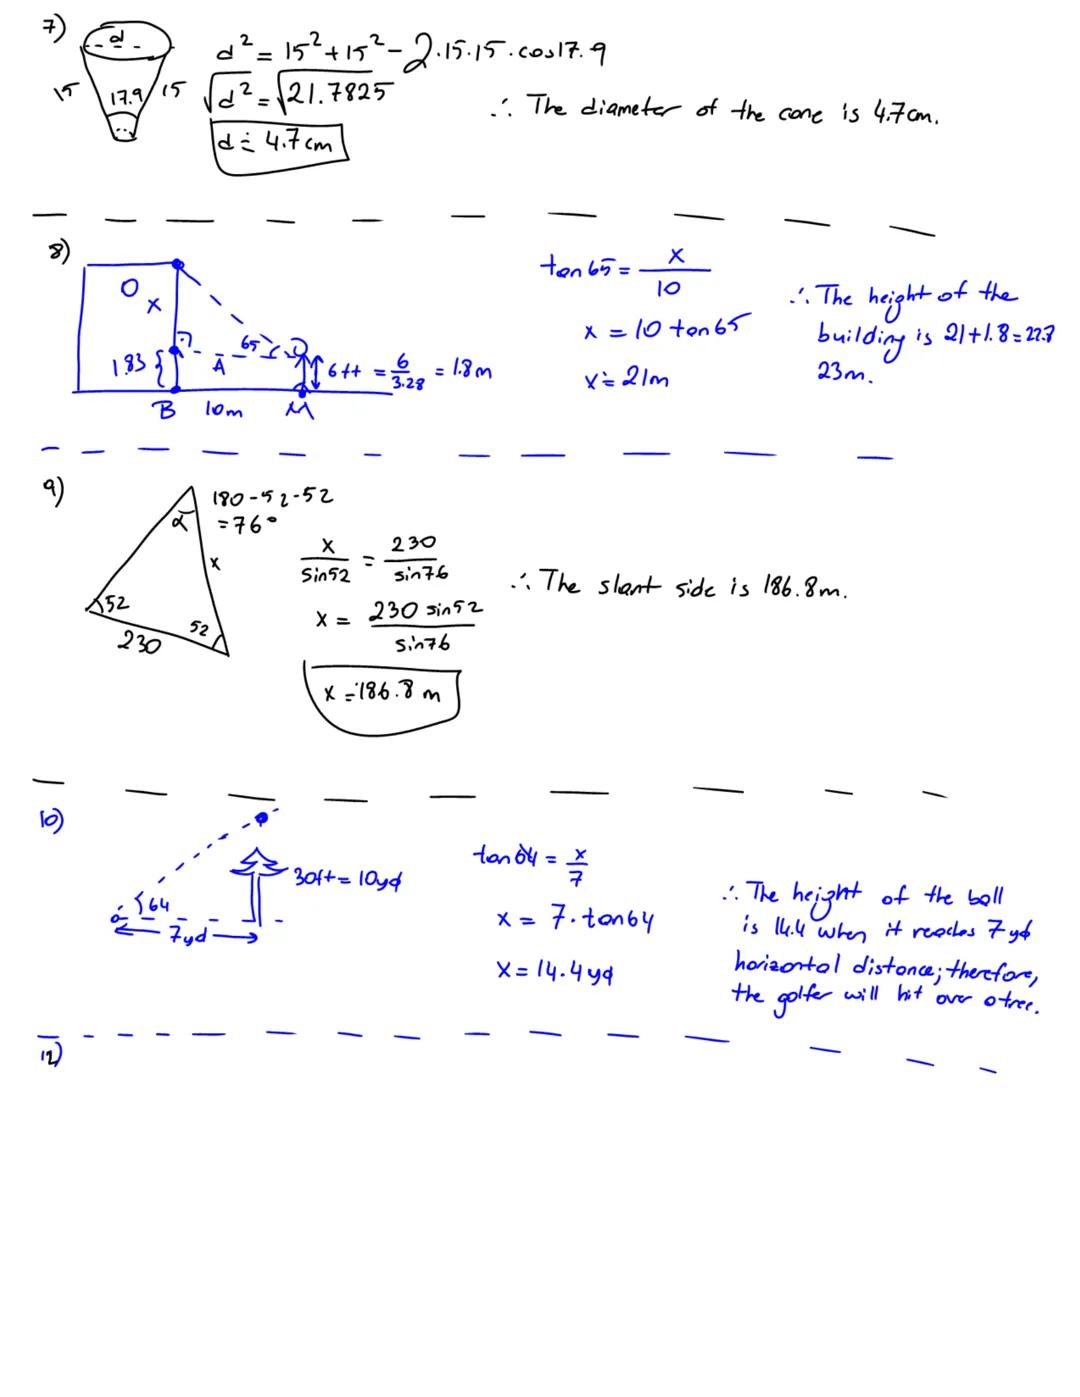 7)
d
15 17.9 15
d² = 15² + 15² - 2·15·15·cos17.9
√d² = √21.7825
d ≐ 4.7cm
∴ The diameter of the cone is 4.7cm.
8)
O
x
65
1.83 { A
6ft = 6/3.28 = 1.8m
B 10m M
tan65 = x/10
x = 10 tan65
x ≐ 21m
∴ The height of the
building is 21+1.8=22.8
23m.
9)
180-52-52
= 76°
α
x
52
52
230
x/sin52 = 230/sin76
x = 230 sin52/sin76
x ≐ 186.8 m
∴ The slant side is 186.8m.
10)
30ft = 10yd
64
7yd
tan64 = x/7
x = 7·tan64
x = 14.4yd
∴ The height of the ball
is 14.4 when it reaches 7yd
horizontal distance; therefore,
the golfer will hit over a tree.
12)